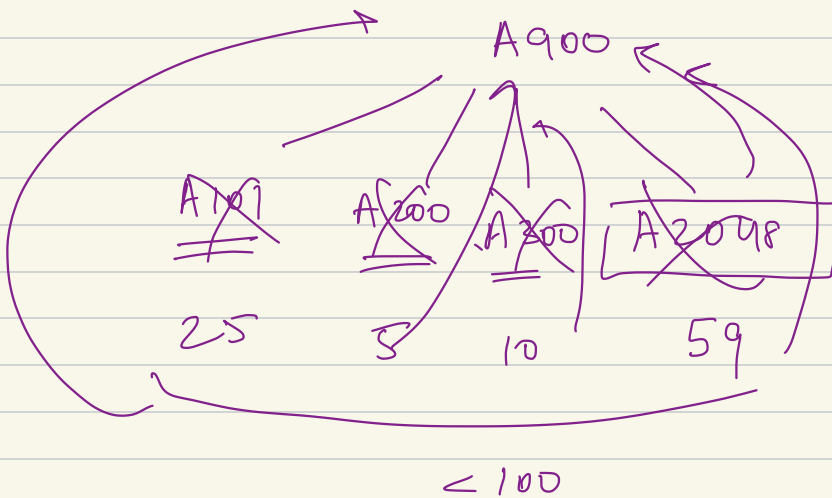 A900
A101 A200 A300 A2098
25 5 10 59
< 100